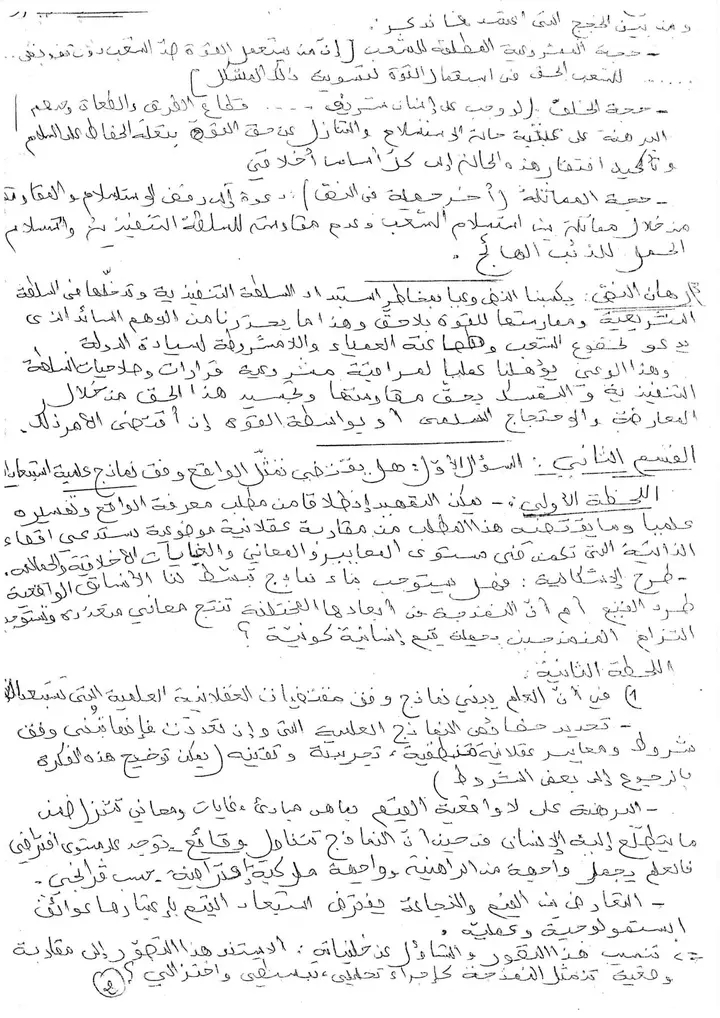 ومن بين الحجج التي اعتمد عليها نذكر:
- حجة المشروعية المطلقة للشعب (إن من يستعمل القوة ضد الشعب دون تفويض..
...... للشعب الحق في استعمال القوة لتسوية ذلك المشكل)
- حجة الخلف (لو وجب على إنسان شريف .... قطاع الطرق والطغاة وحدهم)
البرهنة على عبثية حالة الاستسلام والتنازل عن حق القوة بتعلة الحفاظ على السلام
وتأكيد افتقار هذه الحالة إلى كل أساس أخلاقي
- حجة المماثلة (آخر جملة في النص): دعوة إلى رفض الاستسلام والمقاومة
من خلال مماثلة بين استسلام الشعب وعدم مقاومته للسلطة التنفيذية واستسلام
الحمل للذئب الهائج.
رهان النص: يكسبنا النص وعيا بمخاطر استبداد السلطة التنفيذية وتدخلها في السلطة
التشريعية وممارستها للقوة بلا حق وهذا ما يحررنا من الوهم السائد الذي
يدعو لخضوع الشعب وطاعته العمياء واللامشروطة لسيادة الدولة
وهذا الوعي يؤهلنا عمليا لمراقبة مشروعية قرارات وصلاحيات السلطة
التنفيذية والتمسك بحق مقاومتها وتجسيد هذا الحق من خلال
المعارضة والاحتجاج السلمي أو بواسطة القوة إن اقتضى الأمر ذلك.
القسم الثاني: السؤال الأول: هل يقتضي تمثل الواقع وفق نماذج علمية استبعاد
اللحظة الأولى: - يمكن التمهيد إنطلاقا من مطلب معرفة الواقع وتفسيره
علميا وما يقتضيه هذا المطلب من مقاربة عقلانية موضوعية تستدعي اقصاء
الذاتية التي تكمن في مستوى المعايير والمعاني والغايات الأخلاقية والجمالية.
- طرح الإشكالية: فهل يستوجب بناء نماذج تبسط لنا الأنساق الواقعية
طرد القيم أم أن النمذجة في أبعادها المختلفة تنتج معاني متعددة وتستوجب
التزام المنمذجين بجملة قيم إنسانية كونية؟
اللحظة الثانية:
1) في أن العلم يبني نماذج وفق مقتضيات العقلانية العلمية التي تستبعد
- تحديد خصائص النماذج العلمية التي وإن تعددت فإنها تبنى وفق
شروط ومعايير عقلانية منطقية، تجريبية وتقنية (يمكن توضيح هذه الفكرة
بالرجوع إلى بعض الشروط)
- البرهنة على لاواقعية القيم بما هي مبادئ، غايات ومعاني تتنزل ضمن
ما يتطلع إليه الإنسان في حين أن النماذج تتناول وقائع توجد على مستوى افتراضي
فالعلم يجعل واجهة من الراهنية وواجهة حركية إفتراضية حسب قرانجي.
- التعارض بين القيم والنجاعة يفترض استبعاد القيم باعتبارها عوائق
ابستمولوجية وعملية.
=> تنسيب هذا التصور والتساؤل عن خلفياته: ألا يستند هذا التصور إلى مقاربة
وضعية تتمثل النمذجة كإجراء تحليلي، تبسيطي واختزالي؟
2